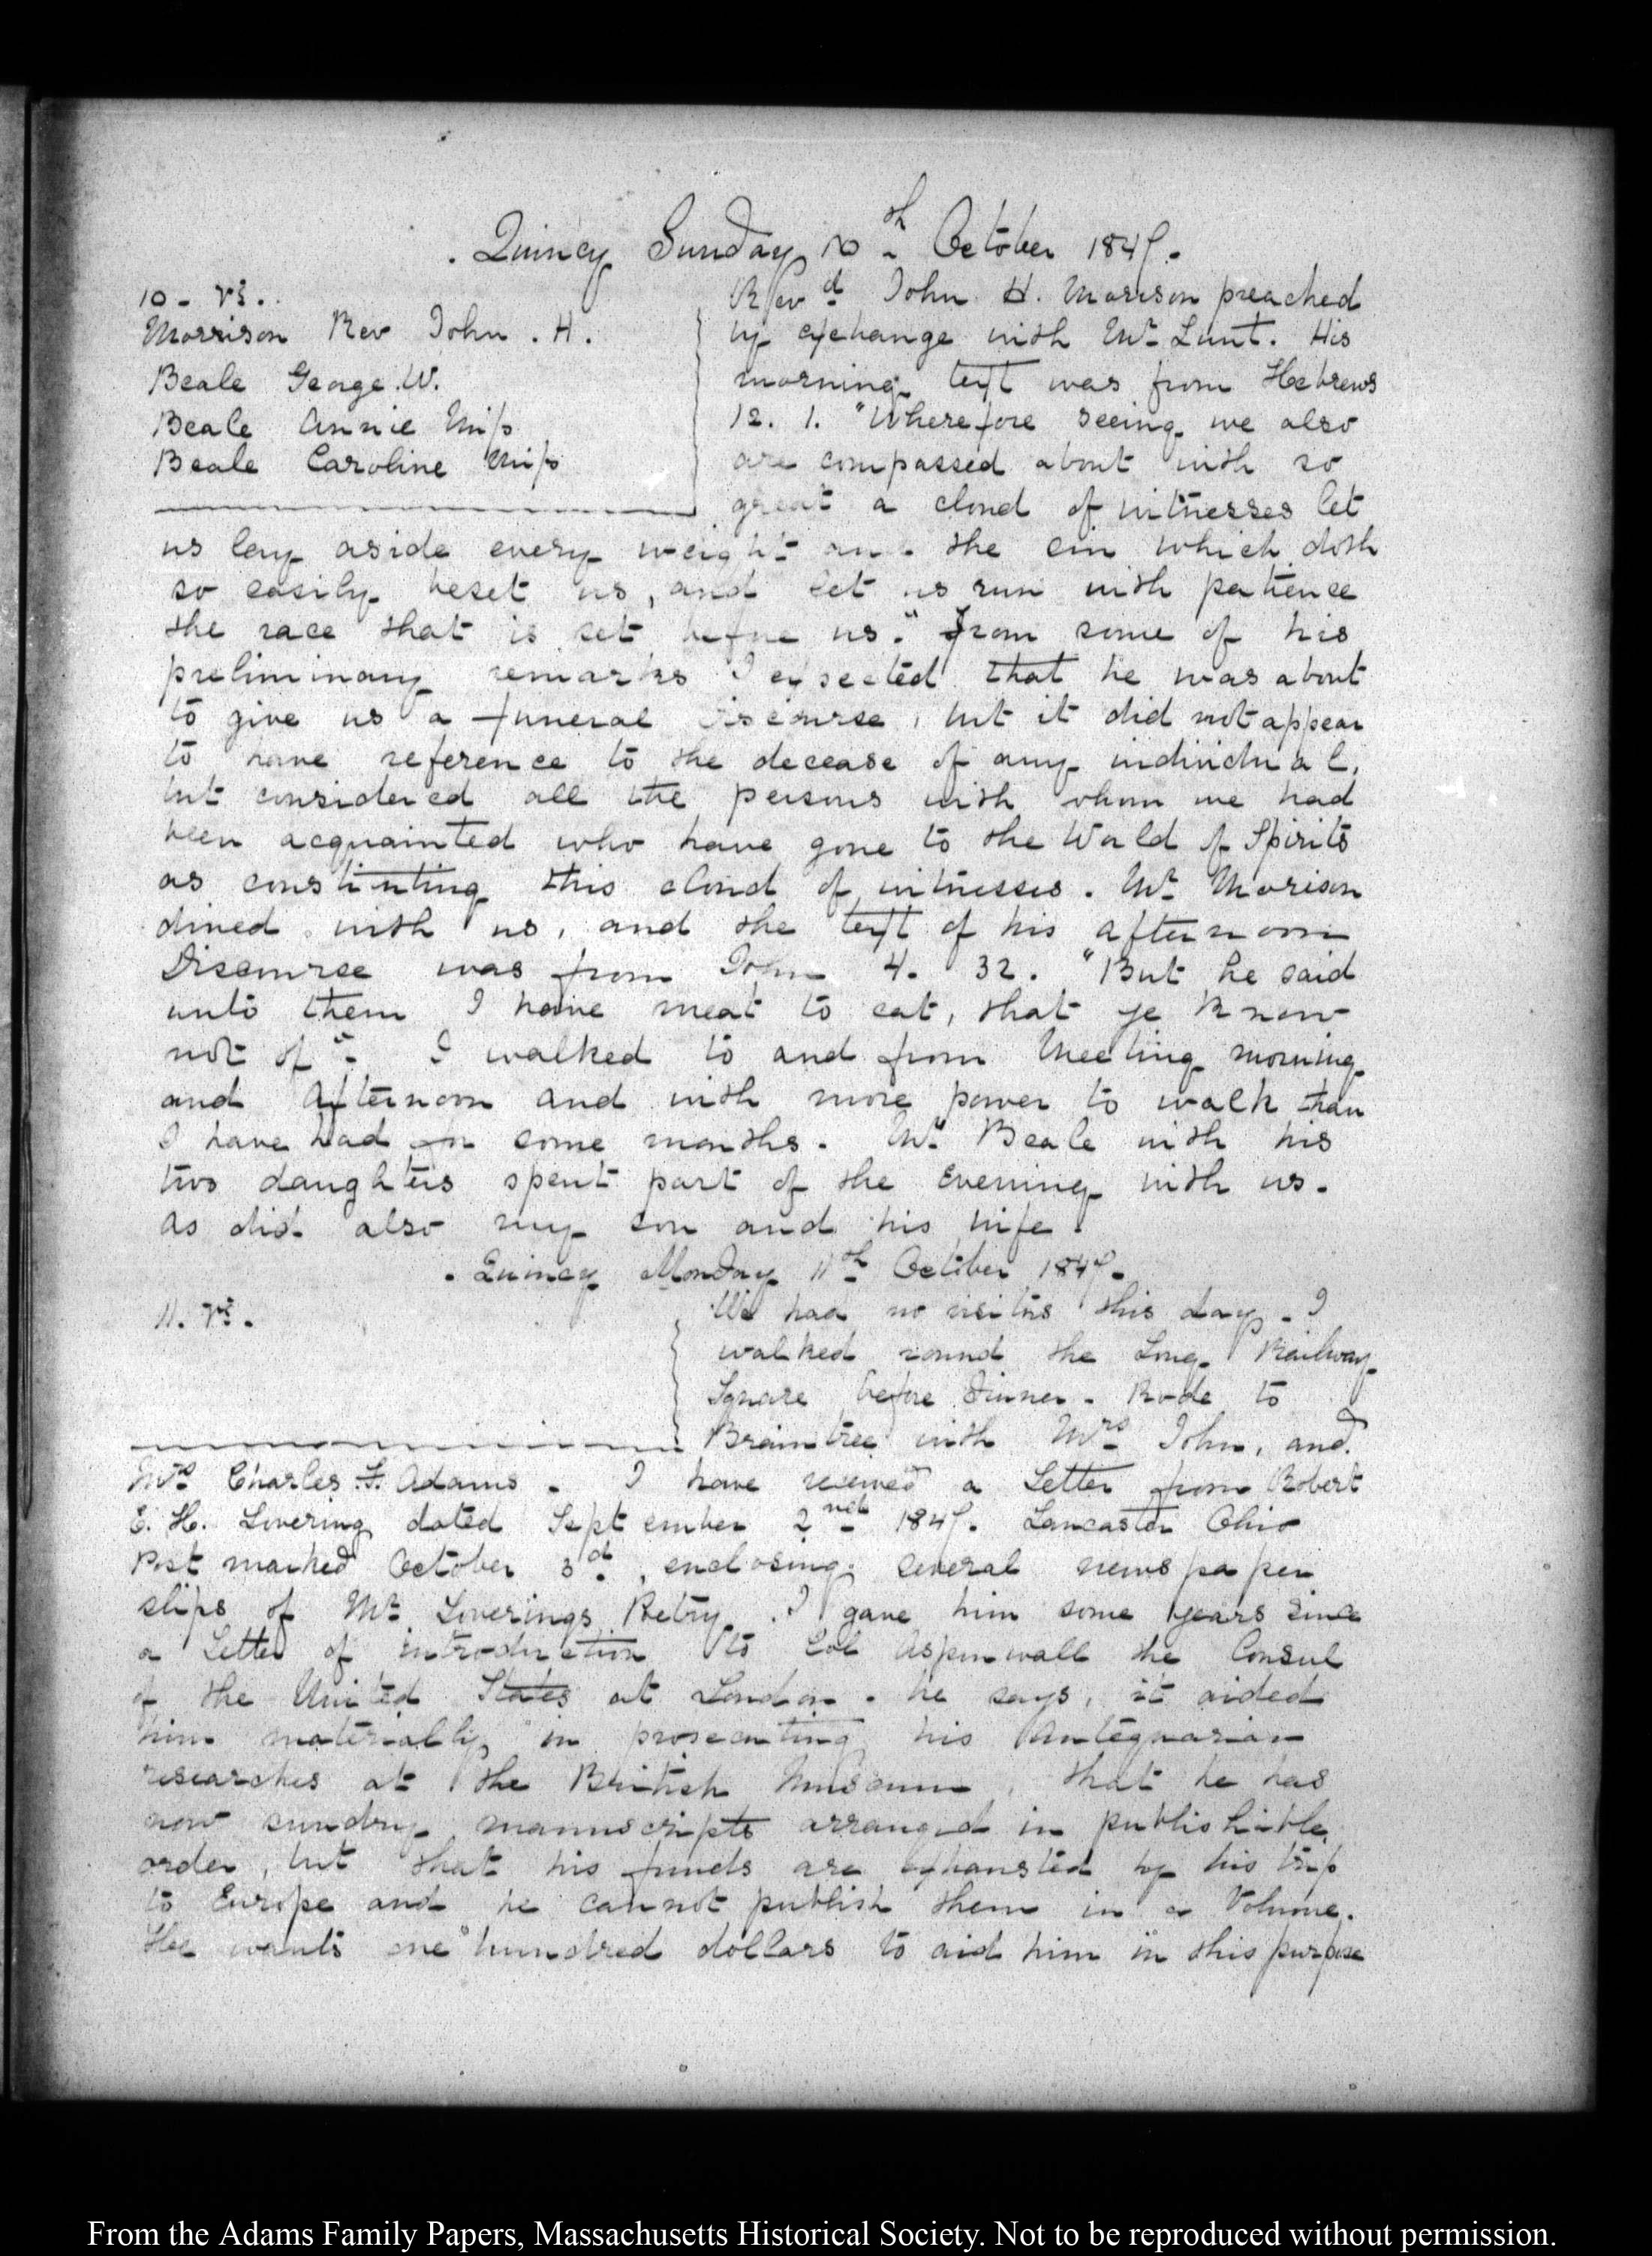 . Quincy Sunday 10th October 1847.
10. VI.
Morrison Rev John. H.
Beale George. W.
Beale Annie Miss
Beale Caroline Miss
Revd John H. Morrison preached
by exchange with Mr Lunt. His
morning text was from Hebrews
12. 1. "Wherefore seeing we also
are compassed about with so
great a cloud of witnesses let
us lay aside every weight and the sin which doth
so easily beset us, and let us run with patience
the race that is set before us." From some of his
preliminary remarks I expected that he was about
to give us a funeral discourse, but it did not appear
to have reference to the decease of any individual,
but considered all the persons with whom we had
been acquainted who have gone to the World of Spirits
as constituting this cloud of witnesses. Mr Morison
dined with us, and the text of his afternoon
Discourse was from John 4. 32. "But he said
unto them I have meat to eat, that ye know
not of". I walked to and from Meeting morning
and Afternoon and with more power to walk than
I have had in some months. Mr Beale with his
two daughters spent part of the Evening with us.
As did also my son and his wife.
. Quincy Monday 11th October 1847.
11. VI.
We had no visitors this day. I
walked round the Long Railway
Square before Dinner. Rode to
Braintree with Mrs John, and
Mrs Charles F. Adams. I have received a Letter from Robert
E. H. Levering dated September 2nd 1847. Lancaster Ohio
Post marked October 3d, enclosing several newspaper
slips of Mr Leverings Poetry. I gave him some years since
a Letter of introduction to Col Aspinwall the Consul
of the United States at London. he says, it aided
him materially in prosecuting his Antequarian
researches at the British Museum, that he has
now sundry manuscripts arranged in publishible
order, but that his funds are exhausted by his trip
to Europe and he cannot publish them in a Volume.
He wants one hundred dollars to aid him in this purpose
From the Adams Family Papers, Massachusetts Historical Society. Not to be reproduced without permission.